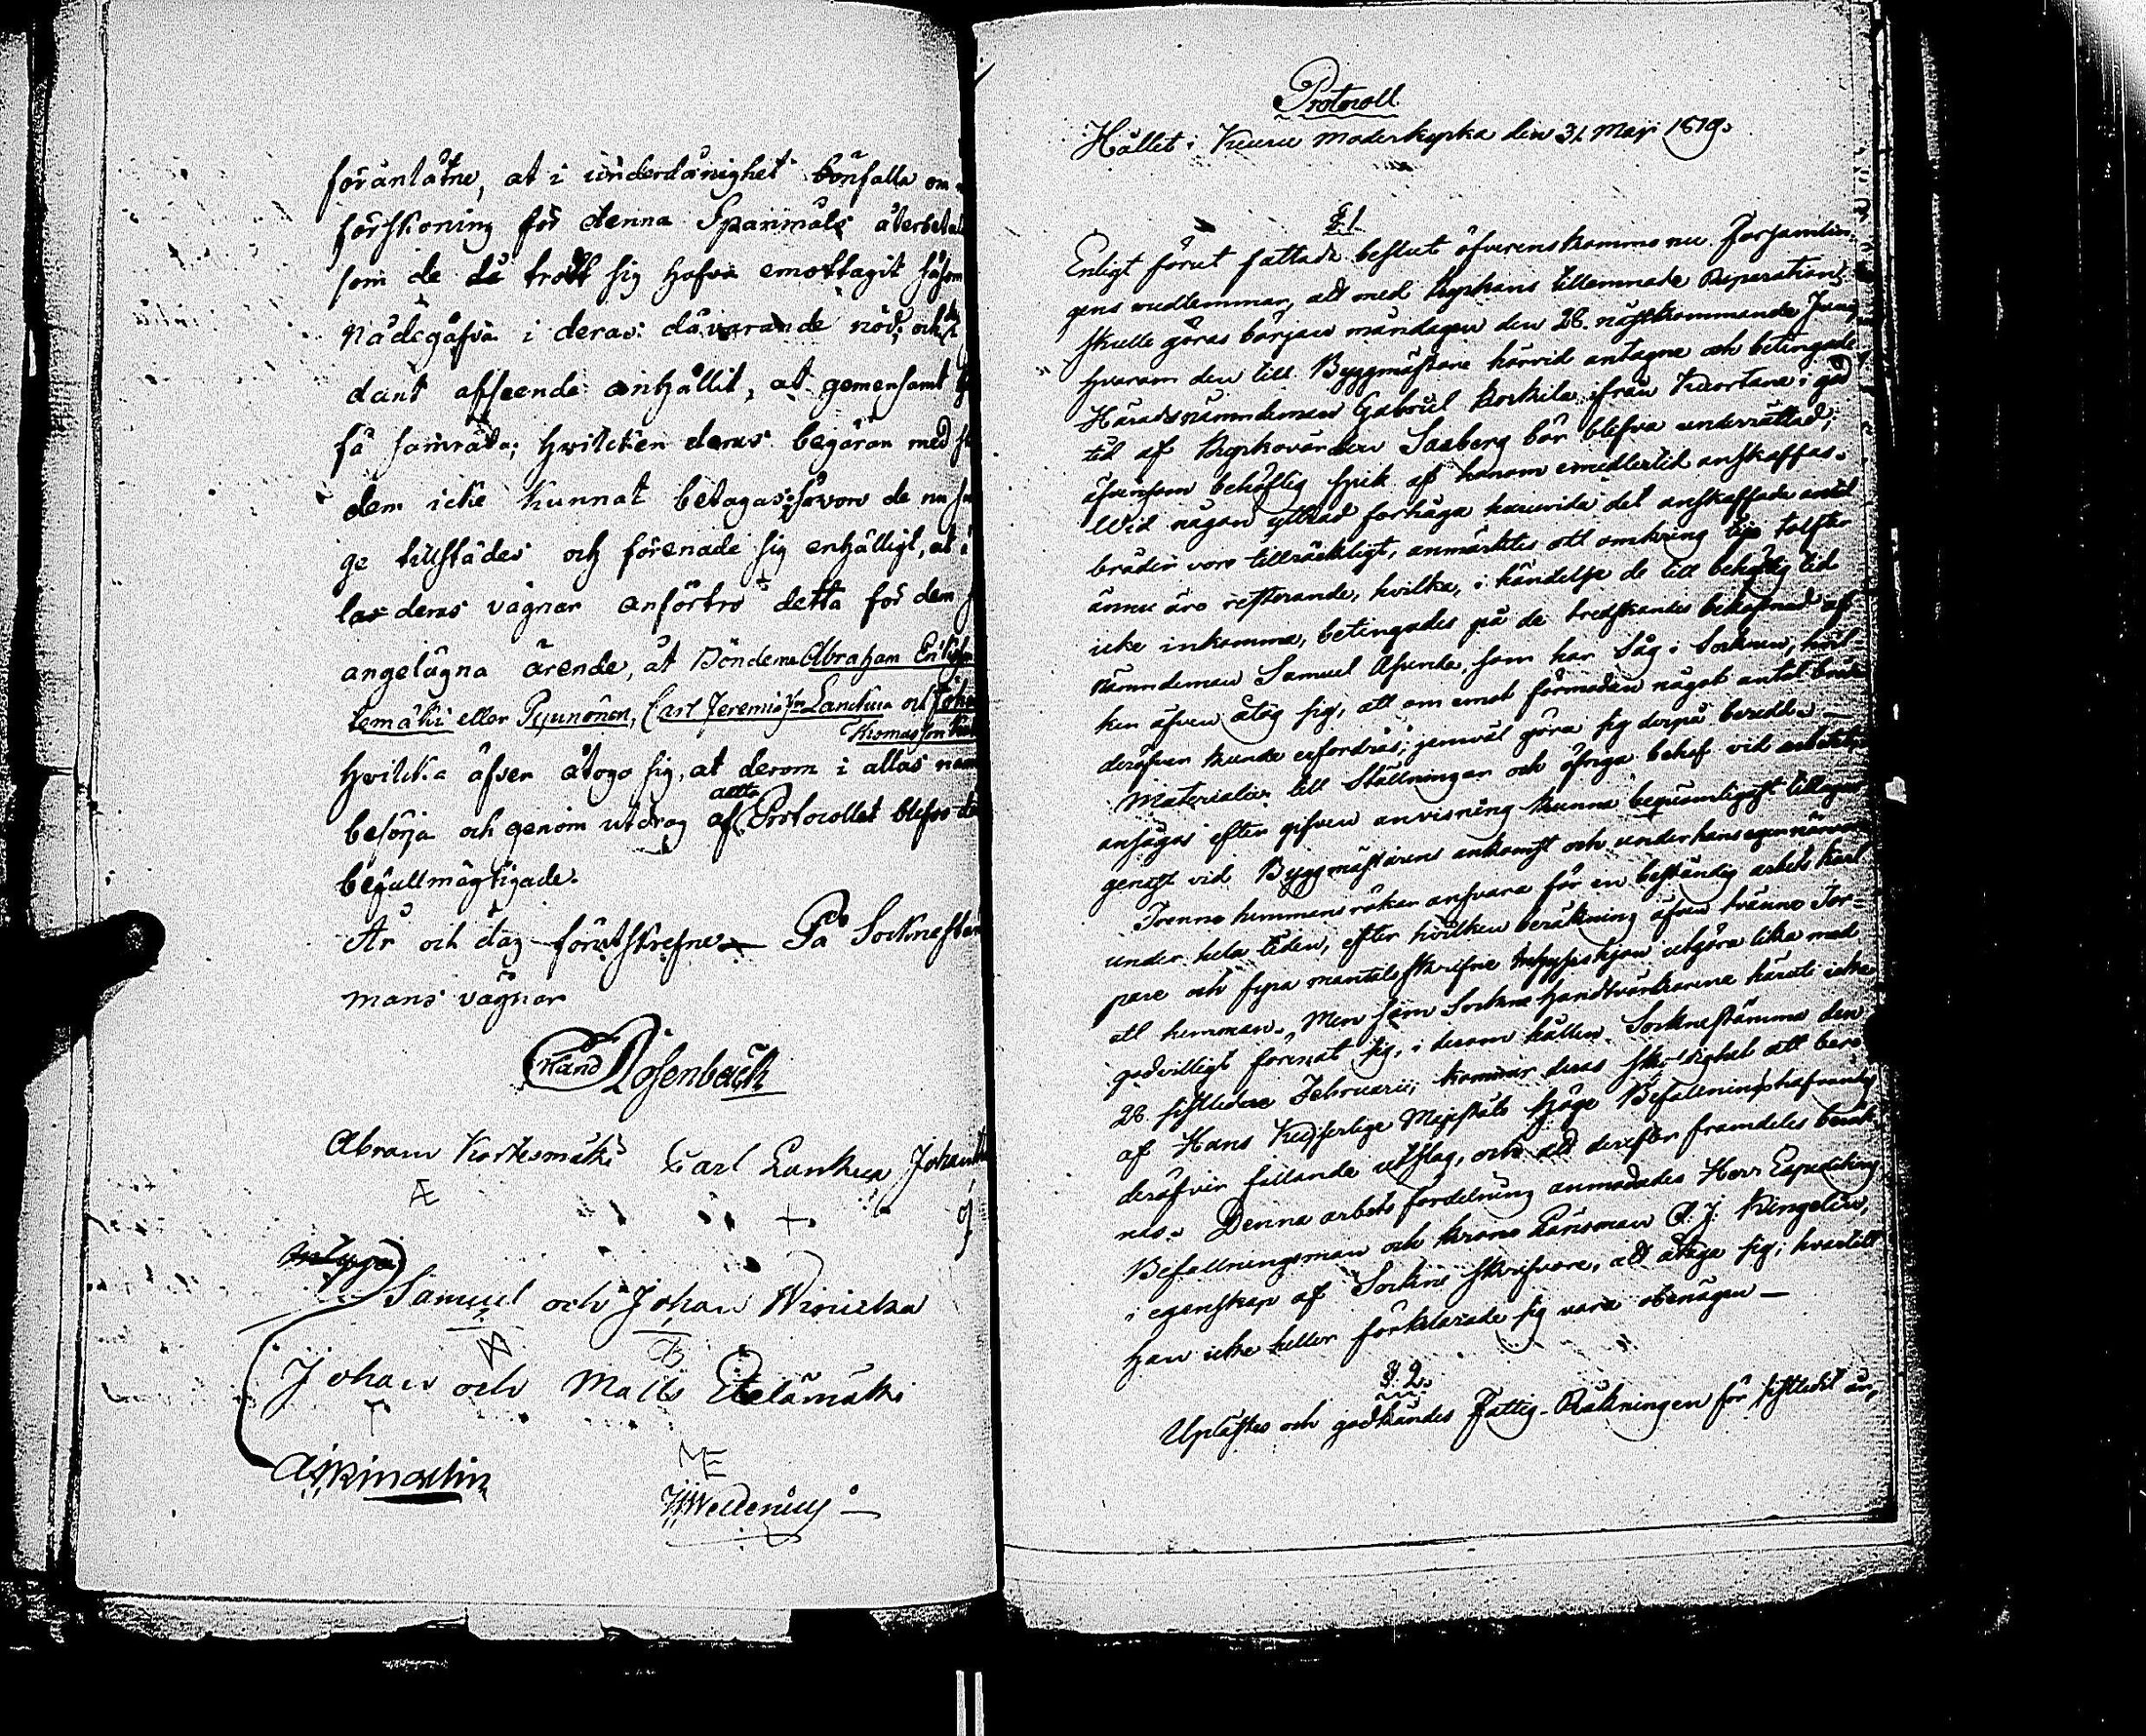 föranlåtne, at i underdånighet bönfalla om
förskoning för denna Spanmåls återbetal
som de då trott sig hafva emottagit såsom
Nådegåfva i deras dåvarande nöd; och
dant afseende anhållit, at gemensamt
få samråda; hwilcken deras begäran med
dem icke kunnat betagas; hvarom de nu
ge tillstädes och förenade sig enhälligt, at i
las deras vägnar anförtro detta för dem
angelägna ärende, åt Bönderne Abraham
temäki eller Pyunönen, Carl Jeremiæson Lanckua och Joha
Thomasson
hvilcka äfven åtogo sig, at derom i allas nam
besörja och genom utdrag af detta Protocollet blefvo
befullmägtigade.
År och dag förutskrefne — På Sockneste
mans vägnar
Rand Rosenback
Abram Kortesmäki Carl Lankua Johan
Æ +
Samuel och Johan
Johan och Matts Etelämäki
A J Kingelin ME
J W Wellenius

Protocoll
Hållet i Kuru moderkyrka den 31 Maji 1819.
§ 1
Enligt förut fattade beslut öfverenskommo nu Församlin
gens medlemmar, att med kyrkans tillernnade Reparation
skulle göras början måndagen den 28. nästkommande Junij
hvarom den till Byggmästare härvid antagne och betingade
Häradsnämndeman Gabriel Korkila ifrån Kuortane i god
tid af Kyrkovärden Saxberg bör blifva underrättad;
äfvensom behöflig spik af honom emedlertid anskaffas.
Wid någon yttrad förfråga huruvida det anskaffade antal
bräder voro tillräckligt, anmärktes att omkring tijo tolfter
ännu äro resterande, hvilka, i händelse de till behörig tid
icke inkomma, betingades på de tredskandes bekostnad af
nämndeman Samuel Asunda, som har Såg i Socknen, hvil-
ken äfven åtog sig, att om emot förmodan något antal bräde
deröfver kunde erfordras, jemväl göra sig derpå beredd. —
Materialier till Ställningar och öfriga behof vid arbetet
ansågos efter gifven anvisning kunna beqvämligast tillagas
genast vid Byggmästarens ankomst och under hans egen närvaro
Trenne hemmans rökar ansvara för en beständig arbets karl
under hela tiden, efter hvilken beräkning äfven trenne Tor=
pare och fyra mantalsskrifne Inhyseshjon utgöra lika med
ett hemman. Men som Sockne Handtvärkarene häruti icke
godvilligt förenat sig, i derom hållen Sockenstämma den
28. sistledne Februarii; kommer deras skyldighet att bero
af Hans Kejserlige Majestäts Höge Befallningshafvandes
deröfver fallande utslag, och att derefter framdeles beräk-
nas. Denna arbets fördelning anmodades Herr Expeditions
Befallningsman och Krono Länsman A. J. Kingelin,
i egenskap af Sockne Skrifvare, att åtaga sig, hvartill
han icke heller förklarade sig vara obenägen —
§ 2.
Uplästes och godkändes Fattig-Räkningen för sistledit år,